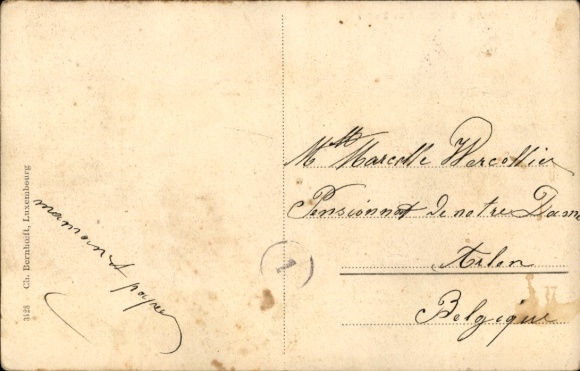 3128 Ch. Bernhoeft, Luxembourg
maman & papa
Mlle Marcelle Wercollier
Pensionnat de notre Dame
Arlon
Belgique
1